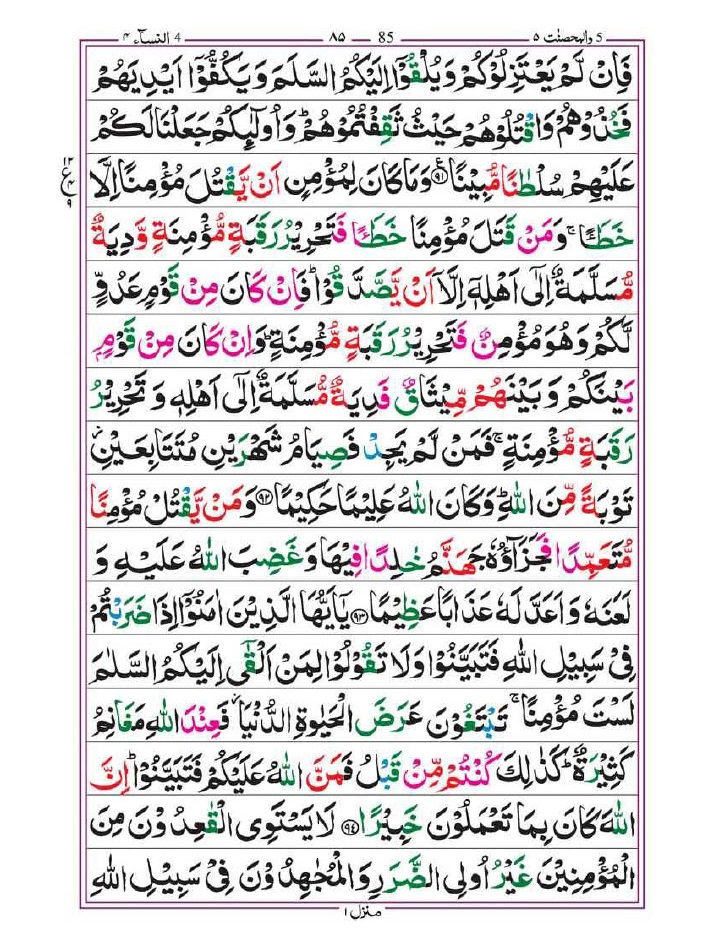 5 والمحصنت ٥ 85 — ٨٥ 4 النسآء ٤
فَاِنۡ لَّمۡ يَعۡتَزِلُوۡكُمۡ وَيُلۡقُوۡۤا اِلَيۡكُمُ السَّلَمَ وَيَكُفُّوۡۤا اَيۡدِيَهُمۡ
فَخُذُوۡهُمۡ وَاقۡتُلُوۡهُمۡ حَيۡثُ ثَقِفۡتُمُوۡهُمۡ‌ؕ وَاُولٰٓئِكُمۡ جَعَلۡنَا لَكُمۡ
عَلَيۡهِمۡ سُلۡطٰنًا مُّبِيۡنًا ۝۹۱ وَمَا كَانَ لِمُؤۡمِنٍ اَنۡ يَّقۡتُلَ مُؤۡمِنًا اِلَّا
١٢ ع ٤ ٩
خَطَــًٔا‌ ۚ وَمَنۡ قَتَلَ مُؤۡمِنًا خَطَــًٔا فَتَحۡرِيۡرُ رَقَبَةٍ مُّؤۡمِنَةٍ وَّدِيَةٌ
مُّسَلَّمَةٌ اِلٰٓى اَهۡلِهٖۤ اِلَّاۤ اَنۡ يَّصَّدَّقُوۡا‌ ؕ فَاِنۡ كَانَ مِنۡ قَوۡمٍ عَدُوٍّ
لَّكُمۡ وَهُوَ مُؤۡمِنٌ فَتَحۡرِيۡرُ رَقَبَةٍ مُّؤۡمِنَةٍ‌ ؕ وَاِنۡ كَانَ مِنۡ قَوۡمٍۢ
بَيۡنَكُمۡ وَبَيۡنَهُمۡ مِّيۡثَاقٌ فَدِيَةٌ مُّسَلَّمَةٌ اِلٰٓى اَهۡلِهٖ وَتَحۡرِيۡرُ
رَقَبَةٍ مُّؤۡمِنَةٍ‌ ۚ فَمَنۡ لَّمۡ يَجِدۡ فَصِيَامُ شَهۡرَيۡنِ مُتَتَابِعَيۡنِ
تَوۡبَةً مِّنَ اللّٰهِ‌ ؕ وَكَانَ اللّٰهُ عَلِيۡمًا حَكِيۡمًا ۝۹۲ وَمَنۡ يَّقۡتُلۡ مُؤۡمِنًا
مُّتَعَمِّدًا فَجَزَآؤُهٗ جَهَـنَّمُ خٰلِدًا فِيۡهَا وَغَضِبَ اللّٰهُ عَلَيۡهِ وَ
لَعَنَهٗ وَاَعَدَّ لَهٗ عَذَابًا عَظِيۡمًا ۝۹۳ يٰۤاَيُّهَا الَّذِيۡنَ اٰمَنُوۡۤا اِذَا ضَرَبۡتُمۡ
فِىۡ سَبِيۡلِ اللّٰهِ فَتَبَيَّنُوۡا وَلَا تَقُوۡلُوۡا لِمَنۡ اَلۡقٰٓى اِلَيۡكُمُ السَّلٰمَ
لَسۡتَ مُؤۡمِنًا‌ ۚ تَبۡتَغُوۡنَ عَرَضَ الۡحَيٰوةِ الدُّنۡيَا فَعِنۡدَ اللّٰهِ مَغَانِمُ
كَثِيۡرَةٌ‌ ؕ كَذٰلِكَ كُنۡتُمۡ مِّنۡ قَبۡلُ فَمَنَّ اللّٰهُ عَلَيۡكُمۡ فَتَبَيَّنُوۡا‌ ؕ اِنَّ
اللّٰهَ كَانَ بِمَا تَعۡمَلُوۡنَ خَبِيۡرًا ۝۹۴ لَا يَسۡتَوِى الۡقٰعِدُوۡنَ مِنَ
الۡمُؤۡمِنِيۡنَ غَيۡرُ اُولِى الضَّرَرِ وَالۡمُجٰهِدُوۡنَ فِىۡ سَبِيۡلِ اللّٰهِ
منزل ١